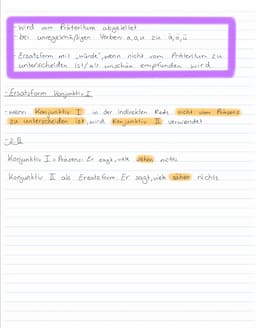 - wird vom Präteritum abgeleitet
- bei unregelmäßigen Verben: a,o,u zu ä,ö,ü
- Ersatzform mit "würde", wenn nicht vom Präteritum zu
unterscheiden ist/als unschön empfunden wird
- Ersatzform Konjunktiv I
- wenn Konjunktiv I in der indirekten Rede nicht vom Präsens
zu unterscheiden ist, wird Konjunktiv II verwendet
- z.B.
Konjunktiv I = Präsens: Er sagt, viele sehen nichts
Konjunktiv II als Ersatzform: Er sagt, viele sähen nichts